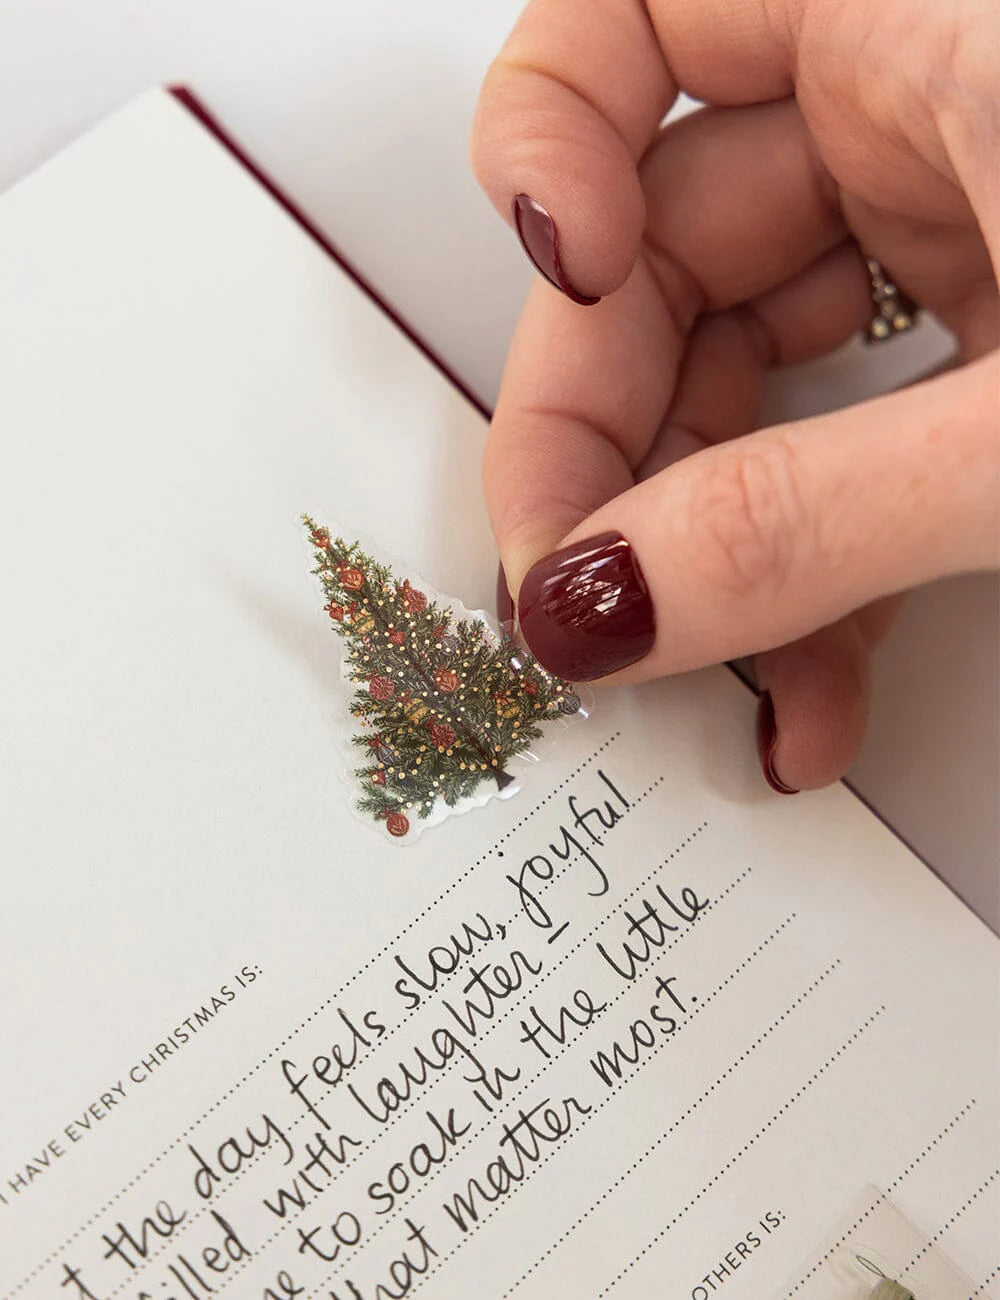 I HAVE EVERY CHRISTMAS IS:
t the day feels slow, joyful
illed with laughter –
to soak in the little
hat matter most.
OTHERS IS: